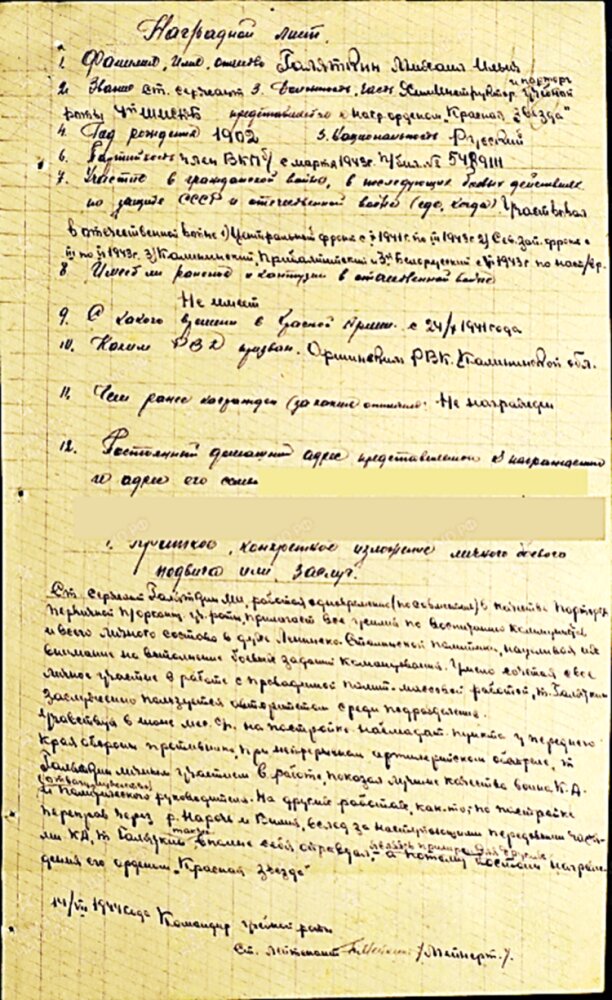 Наградной лист.
1. Фамилия, имя, отчество Галяткин Михаил Ильич
2. Звание ст. сержант 3. Должность, часть Химинструктор и парторг учебной
роты представляется к наг. орденом „Красная звезда"
4. Год рождения 1902 5. Национальность Русский
6. Партийность член ВКП/б с марта 1943 г. п/бил. № 5489111
7. Участие в гражданской войне, в последующих боевых действиях
по защите СССР и отечественной войне (где, когда). Участвовал
в отечественной войне 1) Центральный фронт с 1941 г. по 1943 г. 2) Сев. зап. фронт с
по 1943 г. 3) Калининский, Прибалтийский и 3й Белорусский с 1943 г. по наст/вр.
8. Имеет ли ранения и контузии в отечественной войне
Не имеет
9. С какого времени в Красной Армии. с 24/ 1941 года
10. Каким РВК призван. РВК. Калининской обл.
11. Чем ранее награжден (за какие отличия: Не награжден
12. Постоянный домашний адрес представляемого к награждению
и адрес его семьи
1. Краткое, конкретное изложение личного боевого
подвига или заслуг.
Ст. сержант работая одновременно (по совместит.) в качестве парторга
первичной п/орган. уч. роты, прилагает все усилия по воспитанию коммунистов
и всего личного состава в духе Ленинско-Сталинской политики, нацеливая их
внимание на выполнение боевых заданий командования. Умело сочетая свое
личное участие в работе с проводимой полит-массовой работой, т. Галяткин
заслуженно пользуется авторитетом среди подразделения.
Участвуя в июне мес. на постройке наблюдат. пункта у переднего
края обороны противника, при артиллерийском обстреле, т.
Галяткин личным участием в работе, показал лучшие качества воина К.А.
и политического руководителя. На других работах, как-то: по постройке
переправ через р. Нарочь и Вилия, вслед за наступающими передовыми частя-
ми КА, т. Галяткин также вполне себя оправдал, являясь примером для других
а потому достоин награж-
дения его орденом „Красная звезда"
14/VII 1944 года Командир учебной роты
Ст. лейтенант /Мейперт./